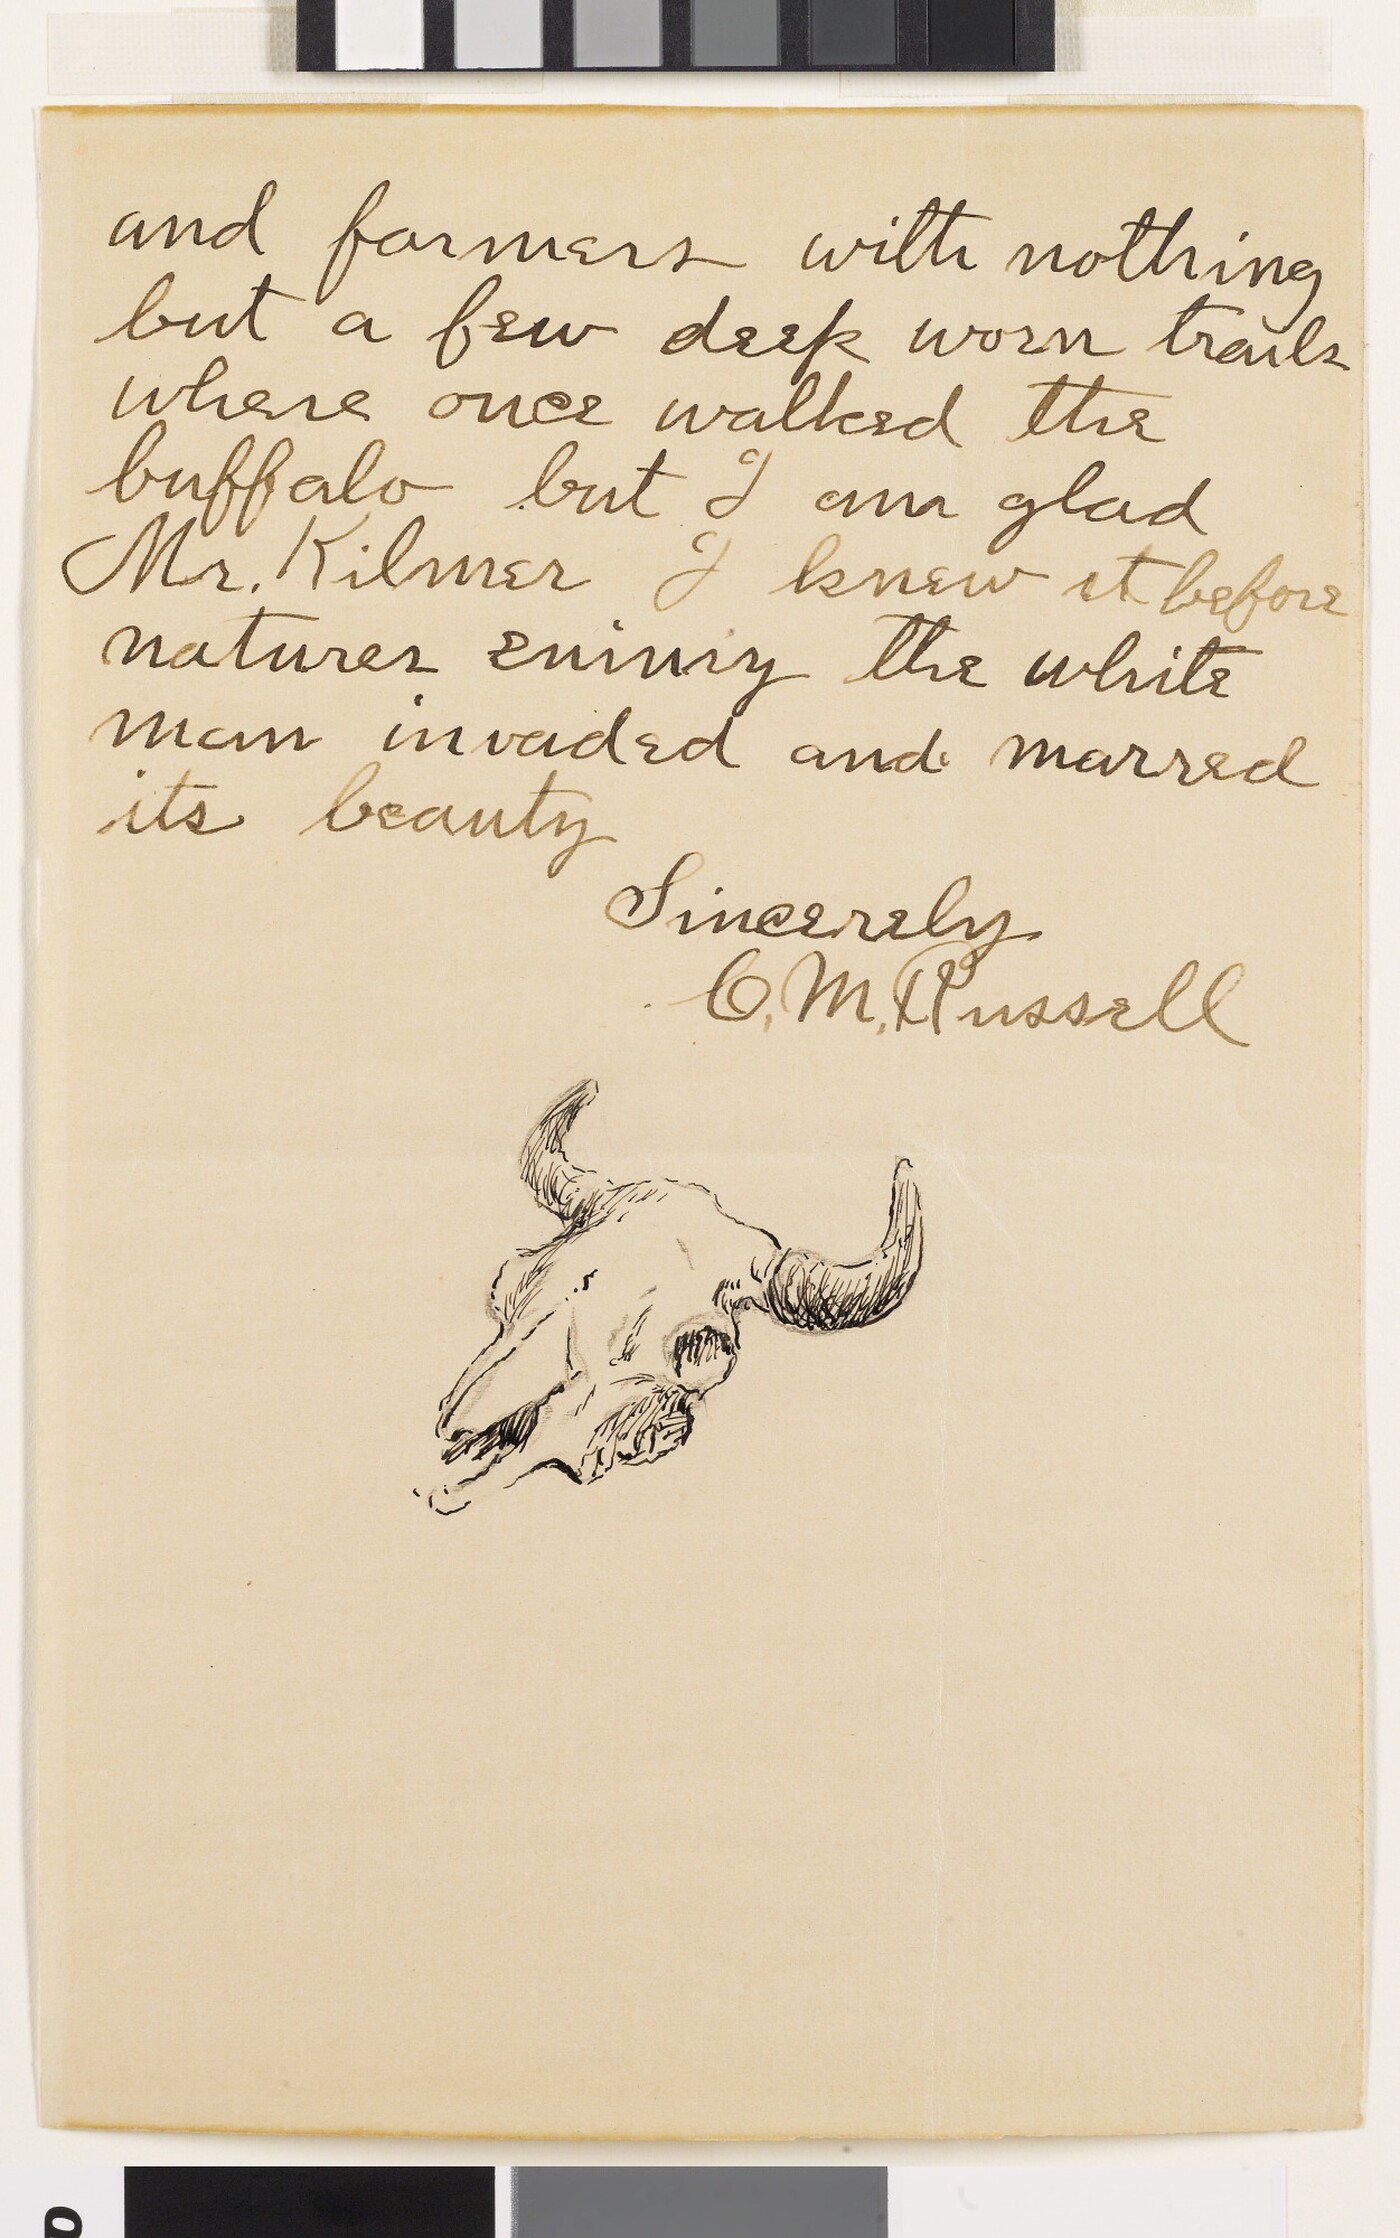 and farmers with nothing
but a few deep worn trails
where once walked the
buffalo but I am glad
Mr. Kilmer I knew it before
natures enimy the white
man invaded and marred
its beauty
Sincerely
C. M. Russell